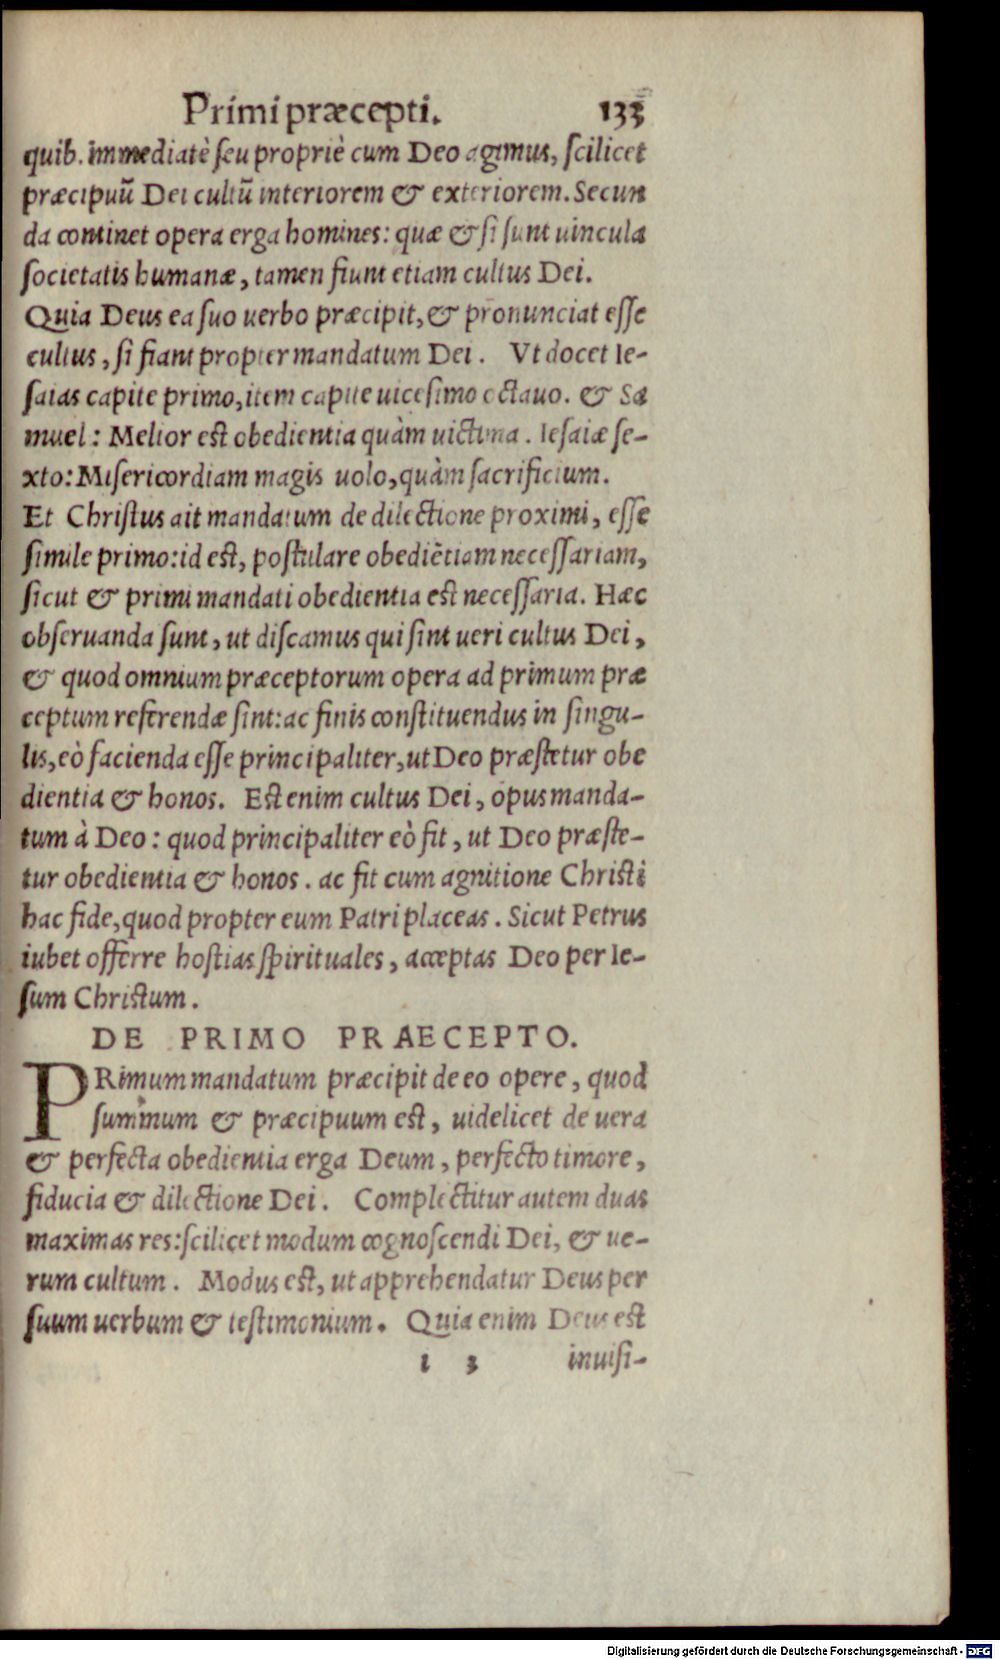 Primi præcepti. 133
quib. immediatè ſeu propriè cum Deo agimus, ſcilicet
præcipuũ Dei cultũ interiorem & exteriorem. Secun
da continet opera erga homines: quæ & ſi ſunt uincula
ſocietatis humanæ, tamen fiunt etiam cultus Dei.
Quia Deus ea ſuo uerbo præcipit, & pronunciat eſſe
cultus, ſi fiant propter mandatum Dei. Vt docet Ie-
ſaias capite primo, item capite uiceſimo octauo. & Sa
muel: Melior eſt obedientia quàm uictima. Ieſaiæ ſe-
xto: Miſericordiam magis uolo, quàm ſacrificium.
Et Chriſtus ait mandatum de dilectione proximi, eſſe
ſimile primo: id eſt, poſtulare obediẽtiam neceſſariam,
ſicut & primi mandati obedientia eſt neceſſaria. Hæc
obſeruanda ſunt, ut diſcamus qui ſint ueri cultus Dei,
& quod omnium præceptorum opera ad primum præ
ceptum referendæ ſint: ac finis conſtituendus in ſingu-
lis, eò facienda eſſe principaliter, ut Deo præſtetur obe
dientia & honos. Eſt enim cultus Dei, opus manda-
tum à Deo: quod principaliter eò fit, ut Deo præſte-
tur obedientia & honos. ac fit cum agnitione Chriſti
hac fide, quod propter eum Patri placeas. Sicut Petrus
iubet offerre hoſtias ſpirituales, acceptas Deo per Ie-
ſum Chriſtum.
DE PRIMO PRAECEPTO.
PRimum mandatum præcipit de eo opere, quod
ſummum & præcipuum eſt, uidelicet de uera
& perfecta obedientia erga Deum, perfecto timore,
fiducia & dilectione Dei. Complectitur autem duas
maximas res: ſcilicet modum cognoſcendi Dei, & ue-
rum cultum. Modus eſt, ut apprehendatur Deus per
ſuum uerbum & teſtimonium. Quia enim Deus eſt
I 3 inuiſi-
Digitalisierung gefördert durch die Deutsche Forschungsgemeinschaft - DFG